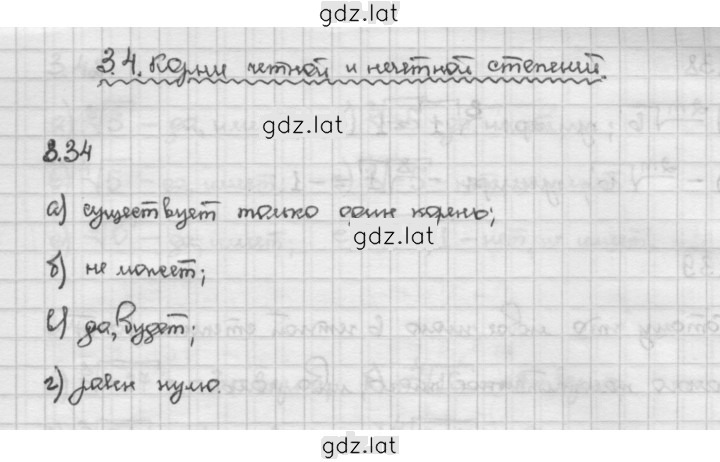 gdz.lat
3.4. Корни четной и нечетной степений.
gdz.lat
3.34
а) существует только один корень;
gdz.lat
б) не может;
в) да, будет;
г) равен нулю.
gdz.lat